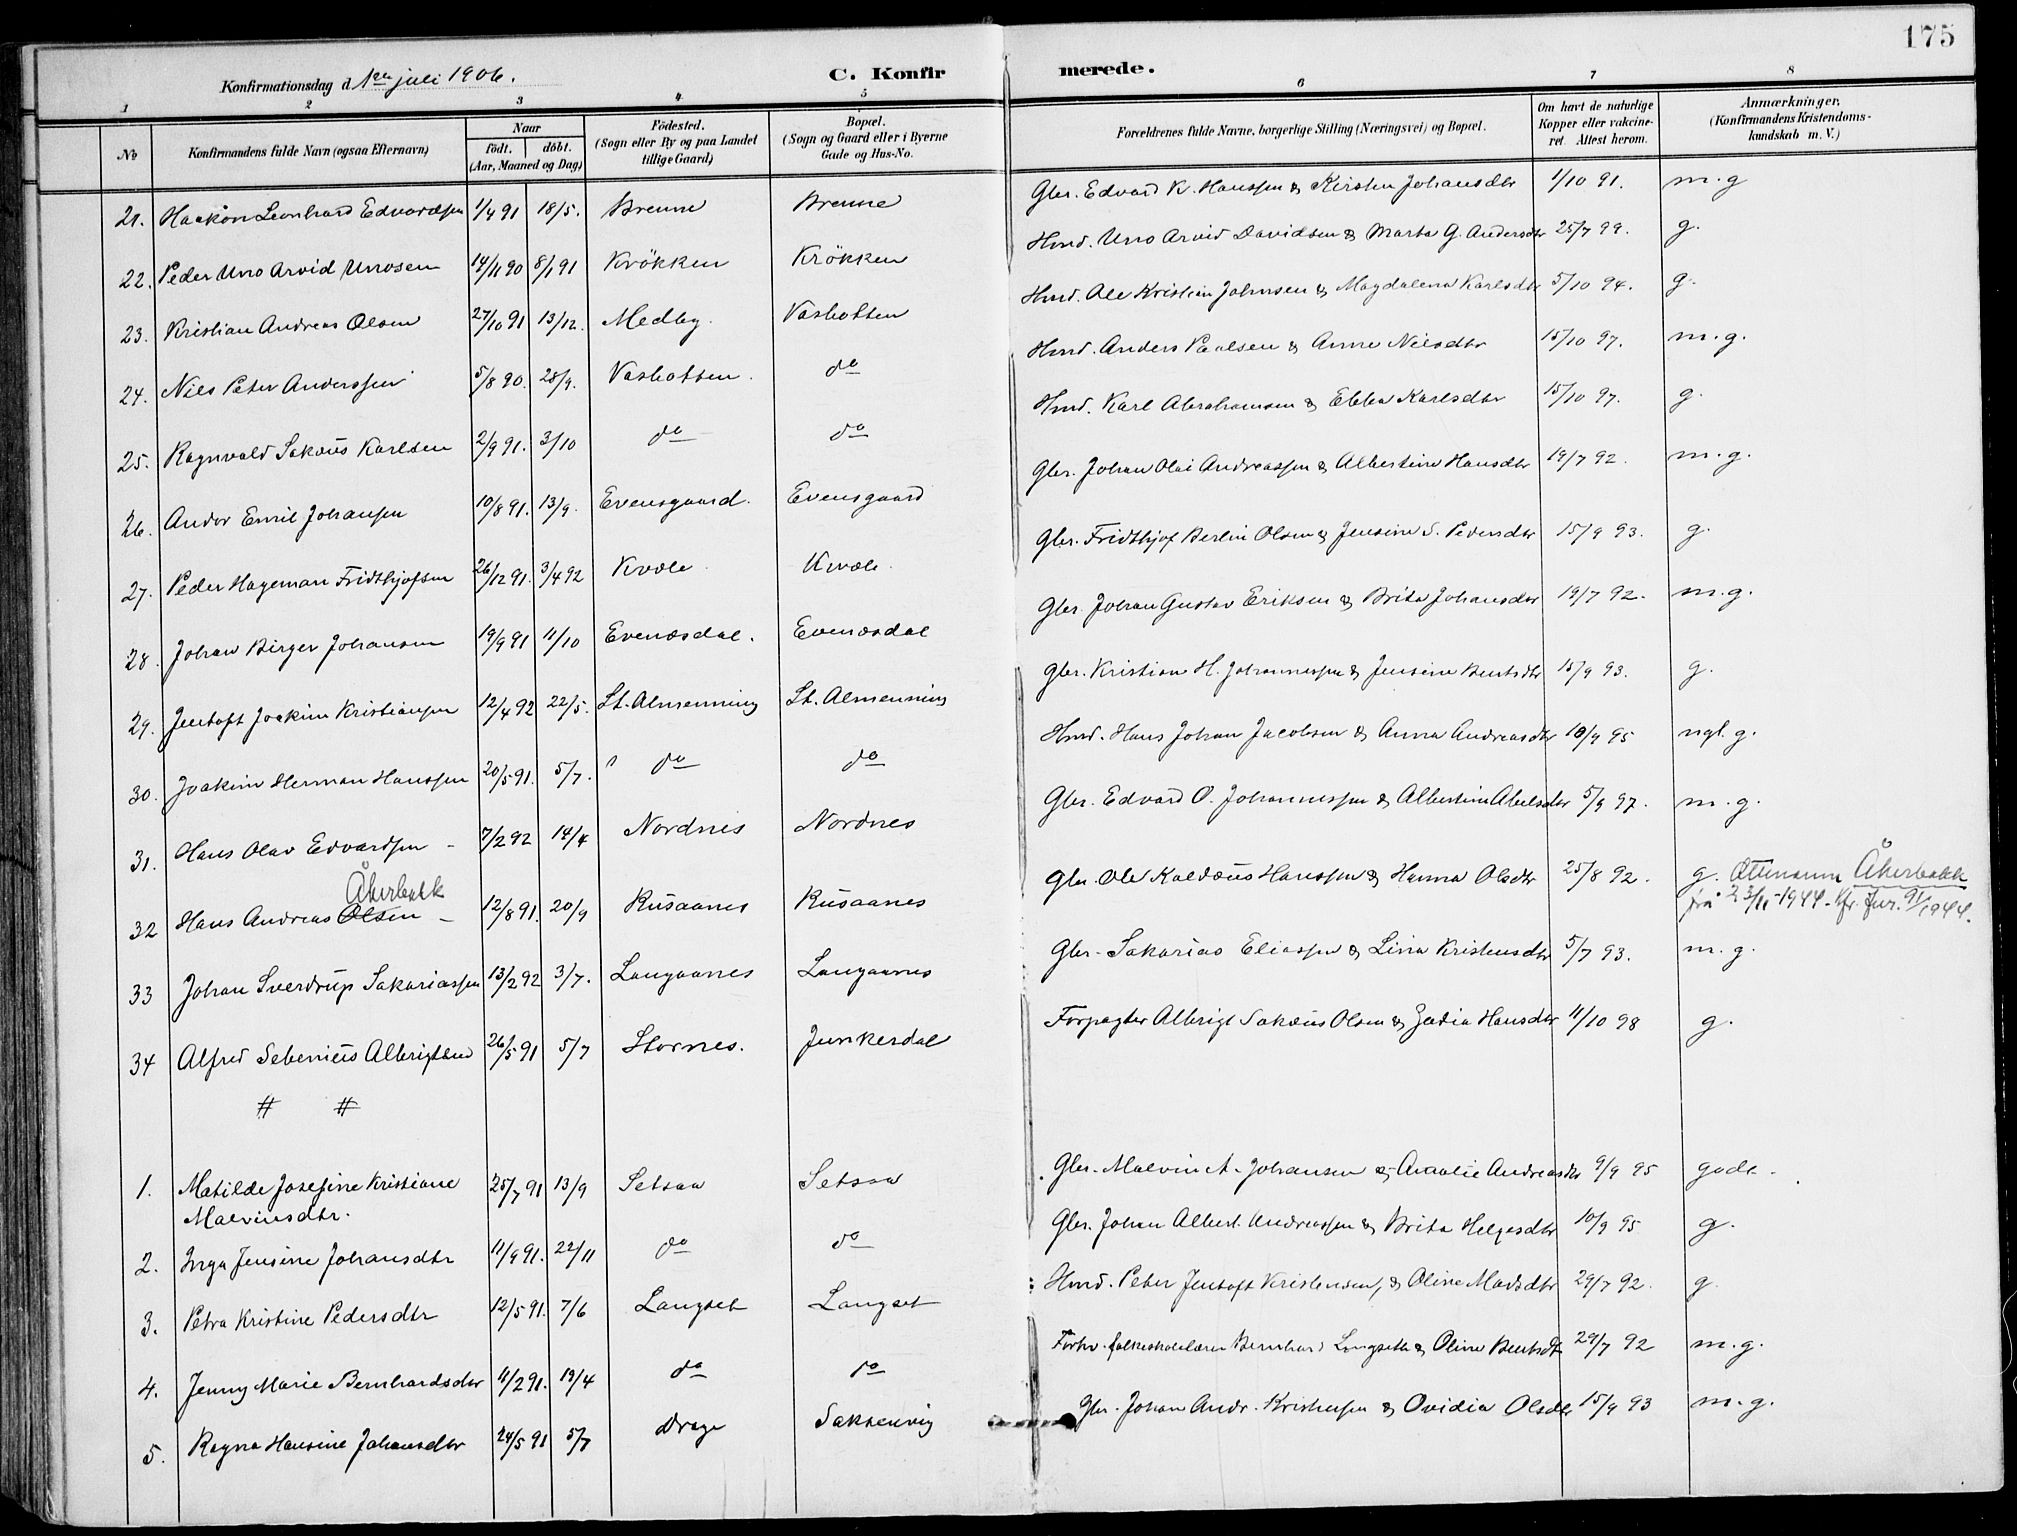 175
Konfirmationsdag d. 1ste juli 1906.
C. Konfirmerede.
1 2 3 4 5 6 7 8
No
Konfirmandens fulde Navn (ogsaa Efternavn)
Naar
födt. döbt.
(Aar, Maaned og Dag)
Födested.
(Sogn eller By og paa Landet
tillige Gaard)
Bopæl.
(Sogn og Gaard eller i Byerne
Gade og Hus-No.
Forældrenes fulde Navne, borgerlige Stilling (Næringsvei) og Bopæl.
Om havt de naturlige
Kopper eller vakcine-
ret. Attest herom.
Anmærkninger,
(Konfirmandens Kristendoms-
kundskab m. V.)
21. Haakon Leonhard Edvardsen 1/4 91 18/5. Brenne Brenne Gbr. Edvard K. Hanssen & Kirsten Johansdtr 1/10 91. m.g
22. Peder Uno Arvid Unosen 14/11 90 8/1 91 Krökken Krökken Hmd. Uno Arvid Davidsen & Marta G. Andersdtr 25/7 99. g.
23. Kristian Andreas Olsen 27/10 91 13/12. Medby. Vasbotten Hmd. Ole Kristian Johnsen & Magdalena Karlsdtr 5/10 94. g.
24. Nils Peter Anderssen 5/8 90. 28/9. Vasbotten. do Hmd. Anders Paulsen & Anne Nilsdtr 15/10 97. m.g.
25. Ragnvald Sakæus Karlsen 2/9 91. 3/10 do do Hmd. Karl Abrahamsen & Ebba Karlsdtr 15/10 97. g.
26. Andor Emil Johansen 10/8 91. 13/9. Evensgaard. Evensgaard Gbr. Johan Olai Andreassen & Albertine Hansdtr 19/7 92. m.g.
27. Peder Hageman Fridthjofsen 26/12 91. 3/4 92 Kvæle. Kvæle. Gbr. Fridthjof Berlin Olsen & Jensine S. Pedersdtr 15/9 93. g.
28. Johan Birger Johansen 19/9 91 11/10 Evenæsdal. Evenæsdal Gbr. Johan Gustav Eriksen & Brita Johansdtr 19/7 92. m.g.
29. Jentoft Joakim Kristiansen 12/4 92 22/5. St. Almenning St. Almenning Gbr. Kristian H. Johannessen & Jensine Bentsdtr 15/9 93. g.
30. Joakim Herman Hanssen 20/5 91. 5/7. do do Hmd. Hans Johan Jacobsen & Anna Andreasdtr 10/9 95 ngl. g.
31. Hans Olav Edvardsen - 7/2 92 14/4 Nordnes Nordnes Gbr. Edvard O. Johannessen & Albertine Abelsdtr 5/9 97. m.g.
Åkerbakk
32 Hans Andreas Olsen - 12/8 91. 20/9 Rusaanes Rusaanes Gbr. Ole Kaldæus Hanssen & Hanna Olsdtr 25/8 92. g. Ættenavn Åkerbakk
frå 23/11-1944. Kfr. Jnr. 91/1944.
33 Johan Sverdrup Sakariassen 13/2 92 3/7. Langaanes Langaanes Gbr. Sakarias Eliassen & Lina Kristensdtr 5/7 93. m.g.
34 Alfred Sebenius Albrigtsen 26/5 91 5/7 Stornes. Junkerdal Forpagter Albrigt Sakæus Olsen & Zadia Hansdtr 11/10 98 g.
# #
1. Matilde Josefine Kristiane 25/7 91 13/9 Setsaa Setsaa Gbr. Malvin A. Johansen & Amalie Andreasdtr 9/9 95 godt.
Malvinsdtr.
2. Inga Jensine Johansdtr 11/9 91. 22/11 do do Gbr. Johan Albert Andreassen & Brita Helgesdtr 10/9 95 g.
3. Petra Kristine Pedersdtr 12/5 91. 7/6 Langset Langset Hmd. Peter Jentoft Kristensen, & Oline Madsdtr 29/7 92. g.
4. Jenny Marie Bernhardsdtr 11/2 91. 19/4 do do Forhv. folkeskolelærer Bernhard Langseth & Oline Bentsdtr 29/7 92 m.g.
5. Ragna Hansine Johansdtr 24/5 91 5/7 Drage Saksenvig Gbr. Johan Andr. Kristensen & Ovidia Olsdtr 15/9 93 m.g.